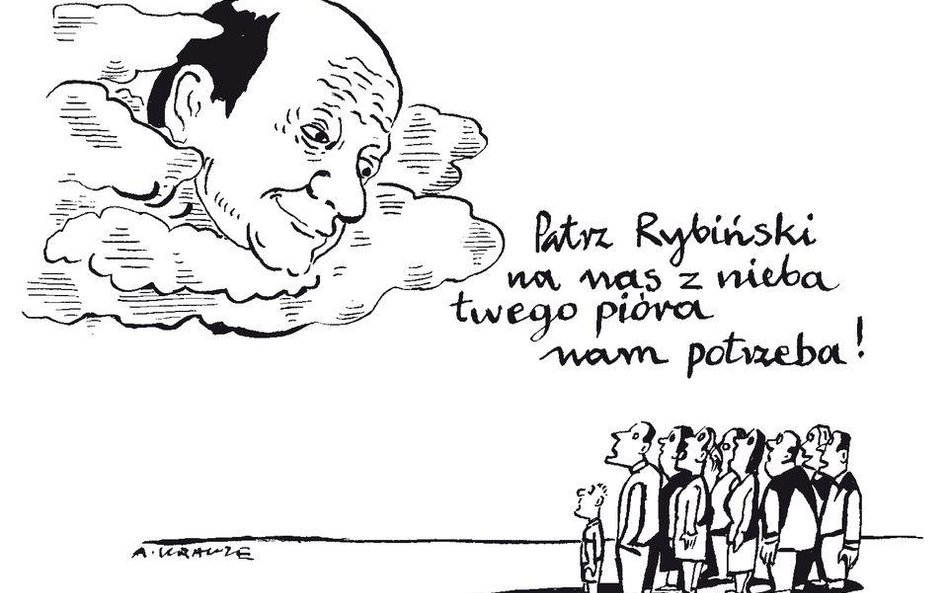 Patrz Rybiński
na nas z nieba
twego pióra
nam potrzeba!
A. KRAUZE